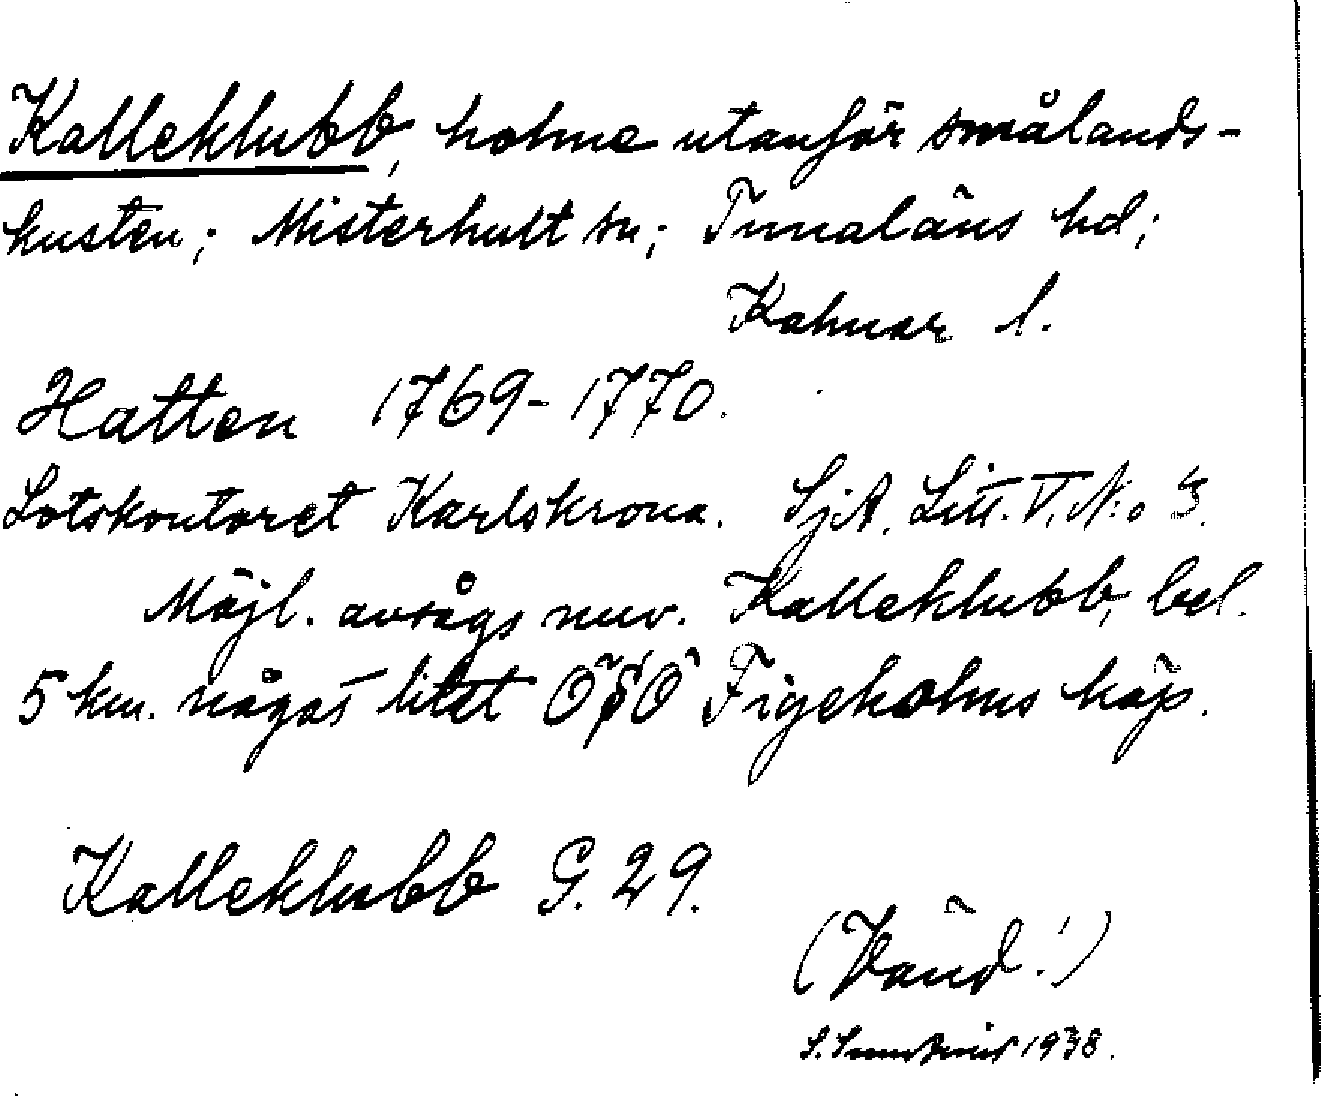 Kalleklubb, holme utanför smålands-
kusten; Misterhult sn; Tunaläns hd;
Kalmar l.
Hatten 1769-1770.
Lotskontoret Karlskrona. SjA. Litt. V. N:o 3.
Möjl. avsågs nuv. Kalleklubb, bel.
5 km. något litet ÖSÖ Figeholms köp.
Kalleklubb G. 29.
(Vänd!)
1938.